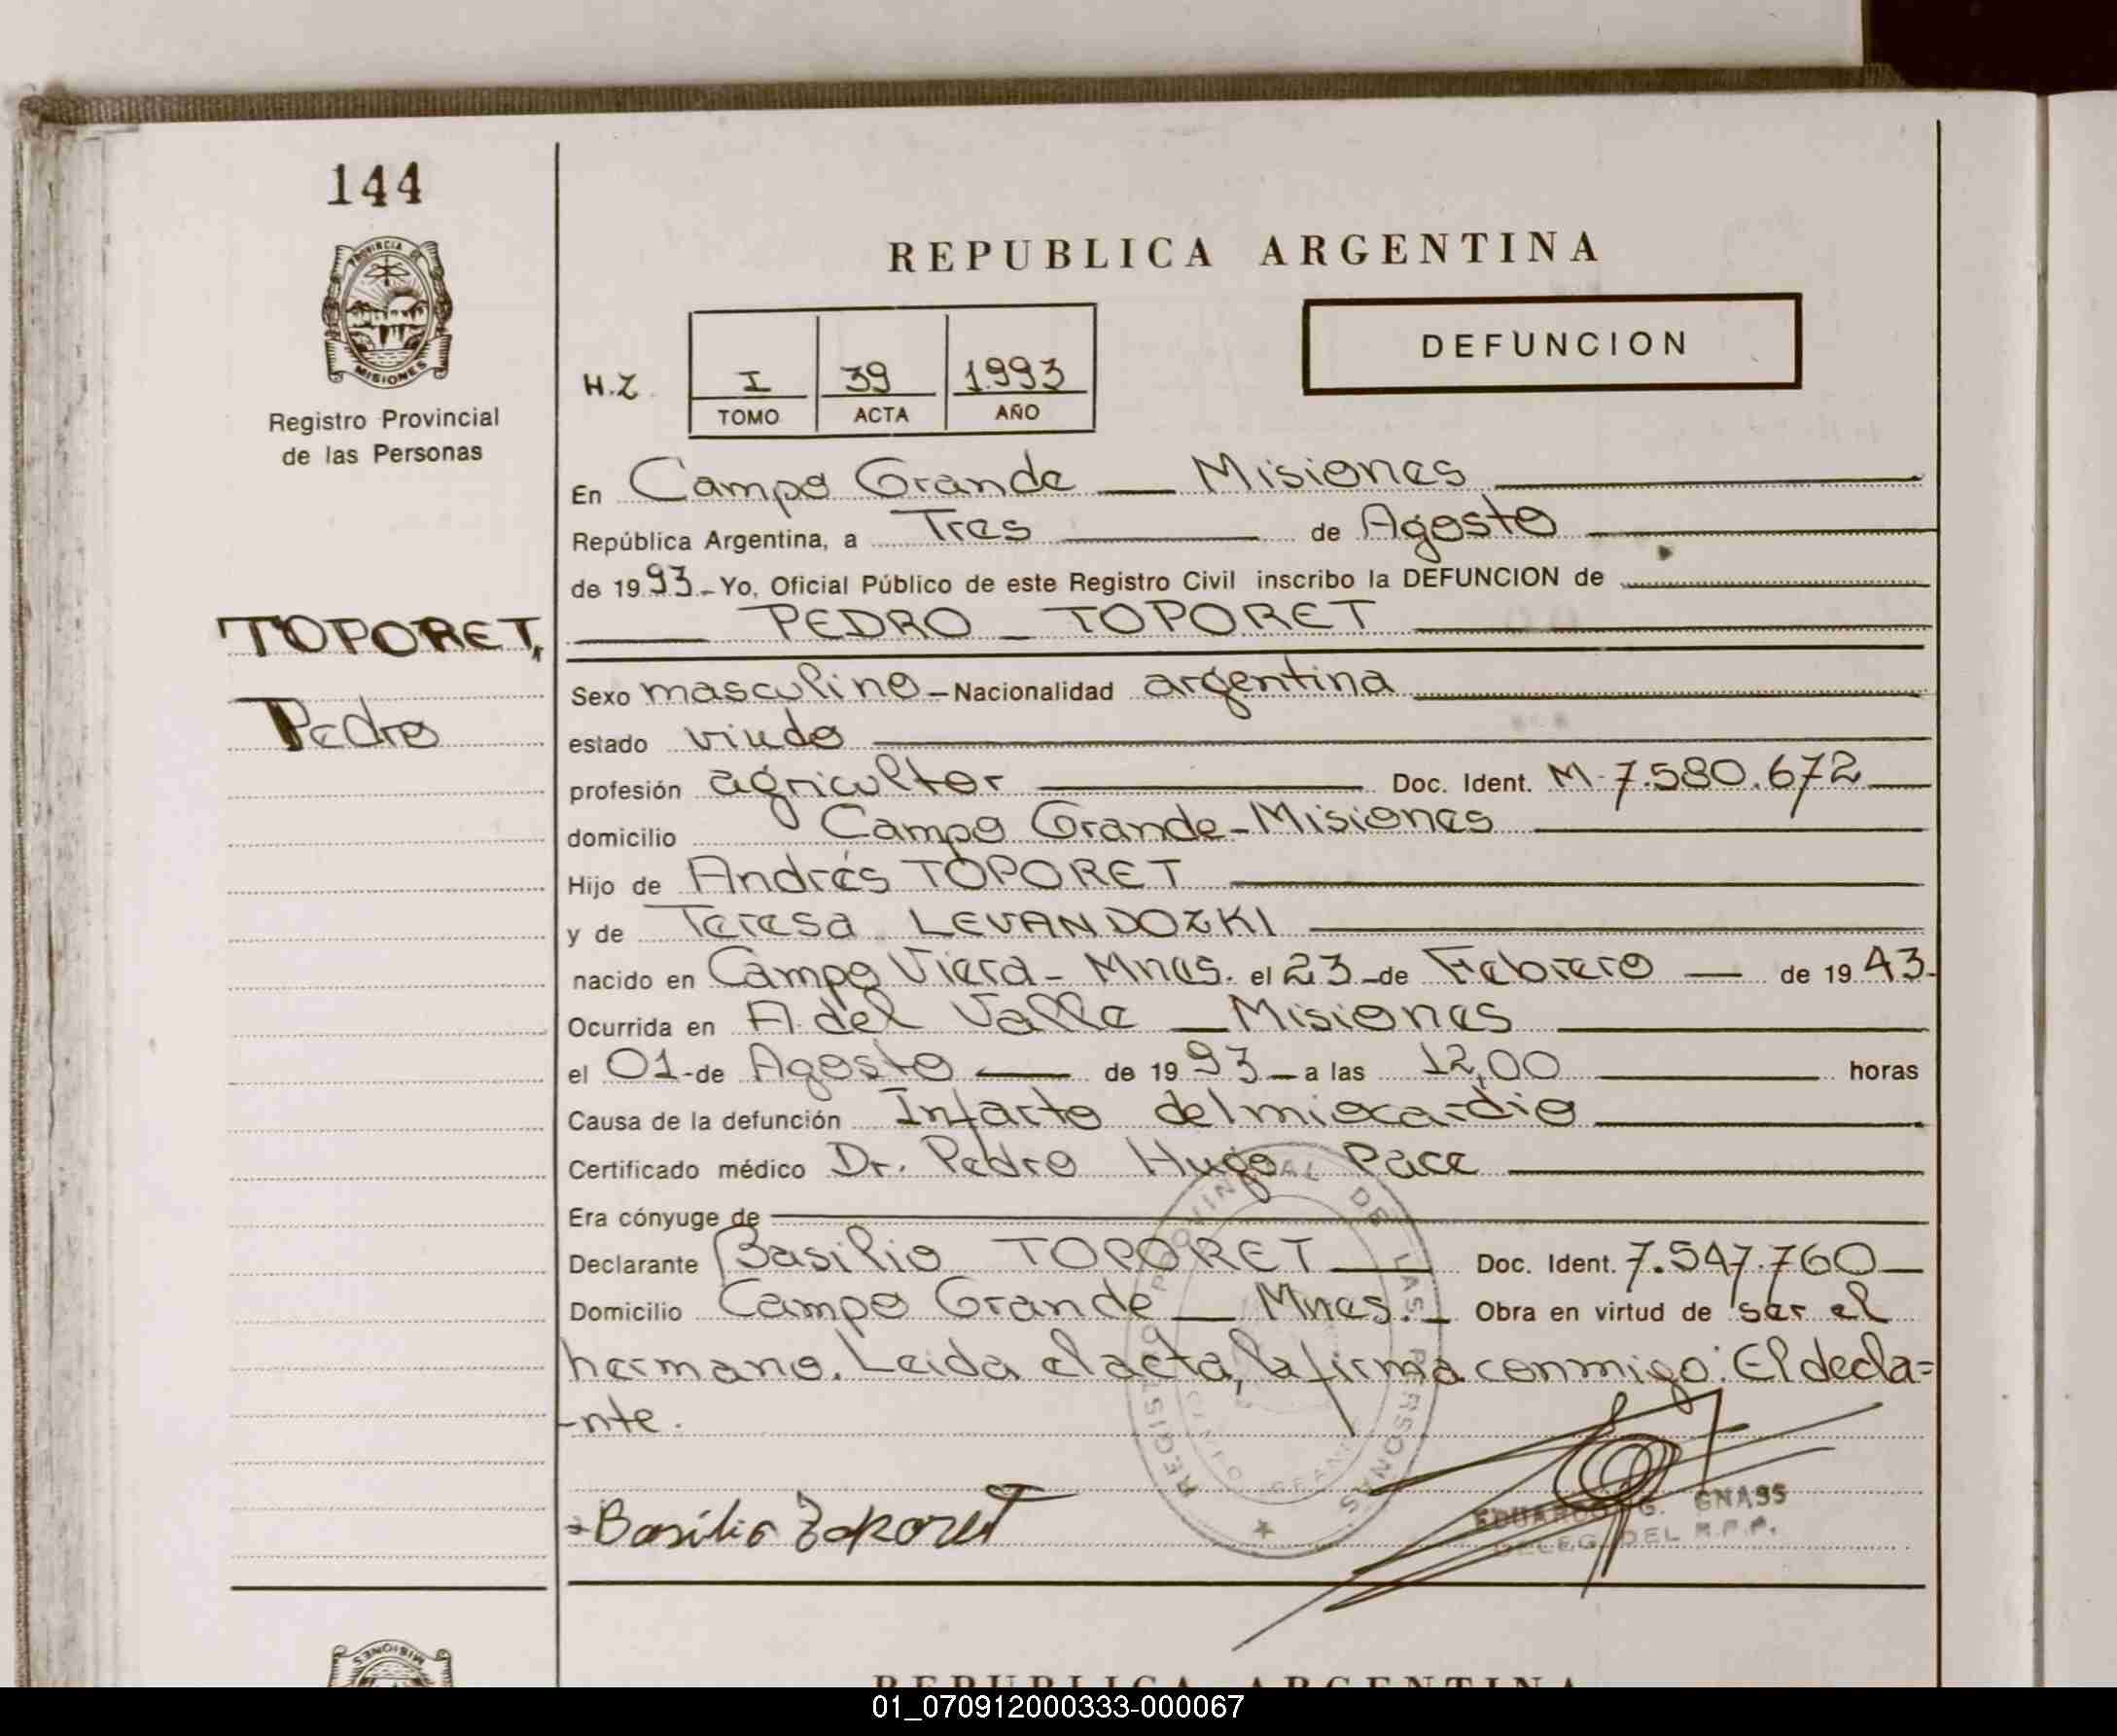 144
PROVINCIA DE
MISIONES
Registro Provincial
de las Personas
TOPORET,
Pedro
REPUBLICA ARGENTINA
H.Z. I 39 1.993
TOMO ACTA AÑO
DEFUNCION
En Campo Grande — Misiones
República Argentina, a Tres de Agosto
de 1993.- Yo, Oficial Público de este Registro Civil inscribo la DEFUNCION de
PEDRO - TOPORET
Sexo masculino - Nacionalidad argentina
estado viudo
profesión agricultor Doc. Ident. M-7.580.672
domicilio Campo Grande - Misiones
Hijo de Andrés TOPORET
y de Teresa LEVANDOZKI
nacido en Campo Viera - Mnes. el 23 - de Febrero — de 19 43-
Ocurrida en A. del Valle — Misiones
el 01 - de Agosto — de 1993 — a las 12,00 horas
Causa de la defunción Infarto del miocardio
Certificado médico Dr. Pedro Hugo Pace
Era cónyuge de
Declarante Basilio TOPORET Doc. Ident. 7.547.760
Domicilio Campo Grande — Mnes. - Obra en virtud de ser el
hermano. Leida el acta, la firma conmigo: El decla=
-nte.
REGISTRO PROVINCIAL DE LAS PERSONAS
CAMPO GRANDE
Basilio Toporet
EDUARDO G. GNASS
DELEG. DEL R.P.P.
MISIONES
REPUBLICA ARGENTINA
01_070912000333-000067